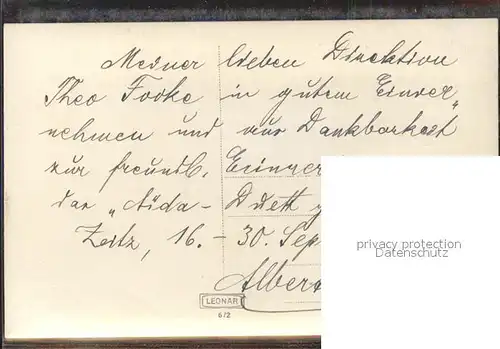 Meiner lieben Direktion
Theo Focke in gutem Einver„
nehmen und aus Dankbarkeit
zur freundl. Erinner
das „Aida-Duett
Zeitz, 16. - 30. Sep
Alber
privacy protection
Datenschutz
LEONAR
6/2